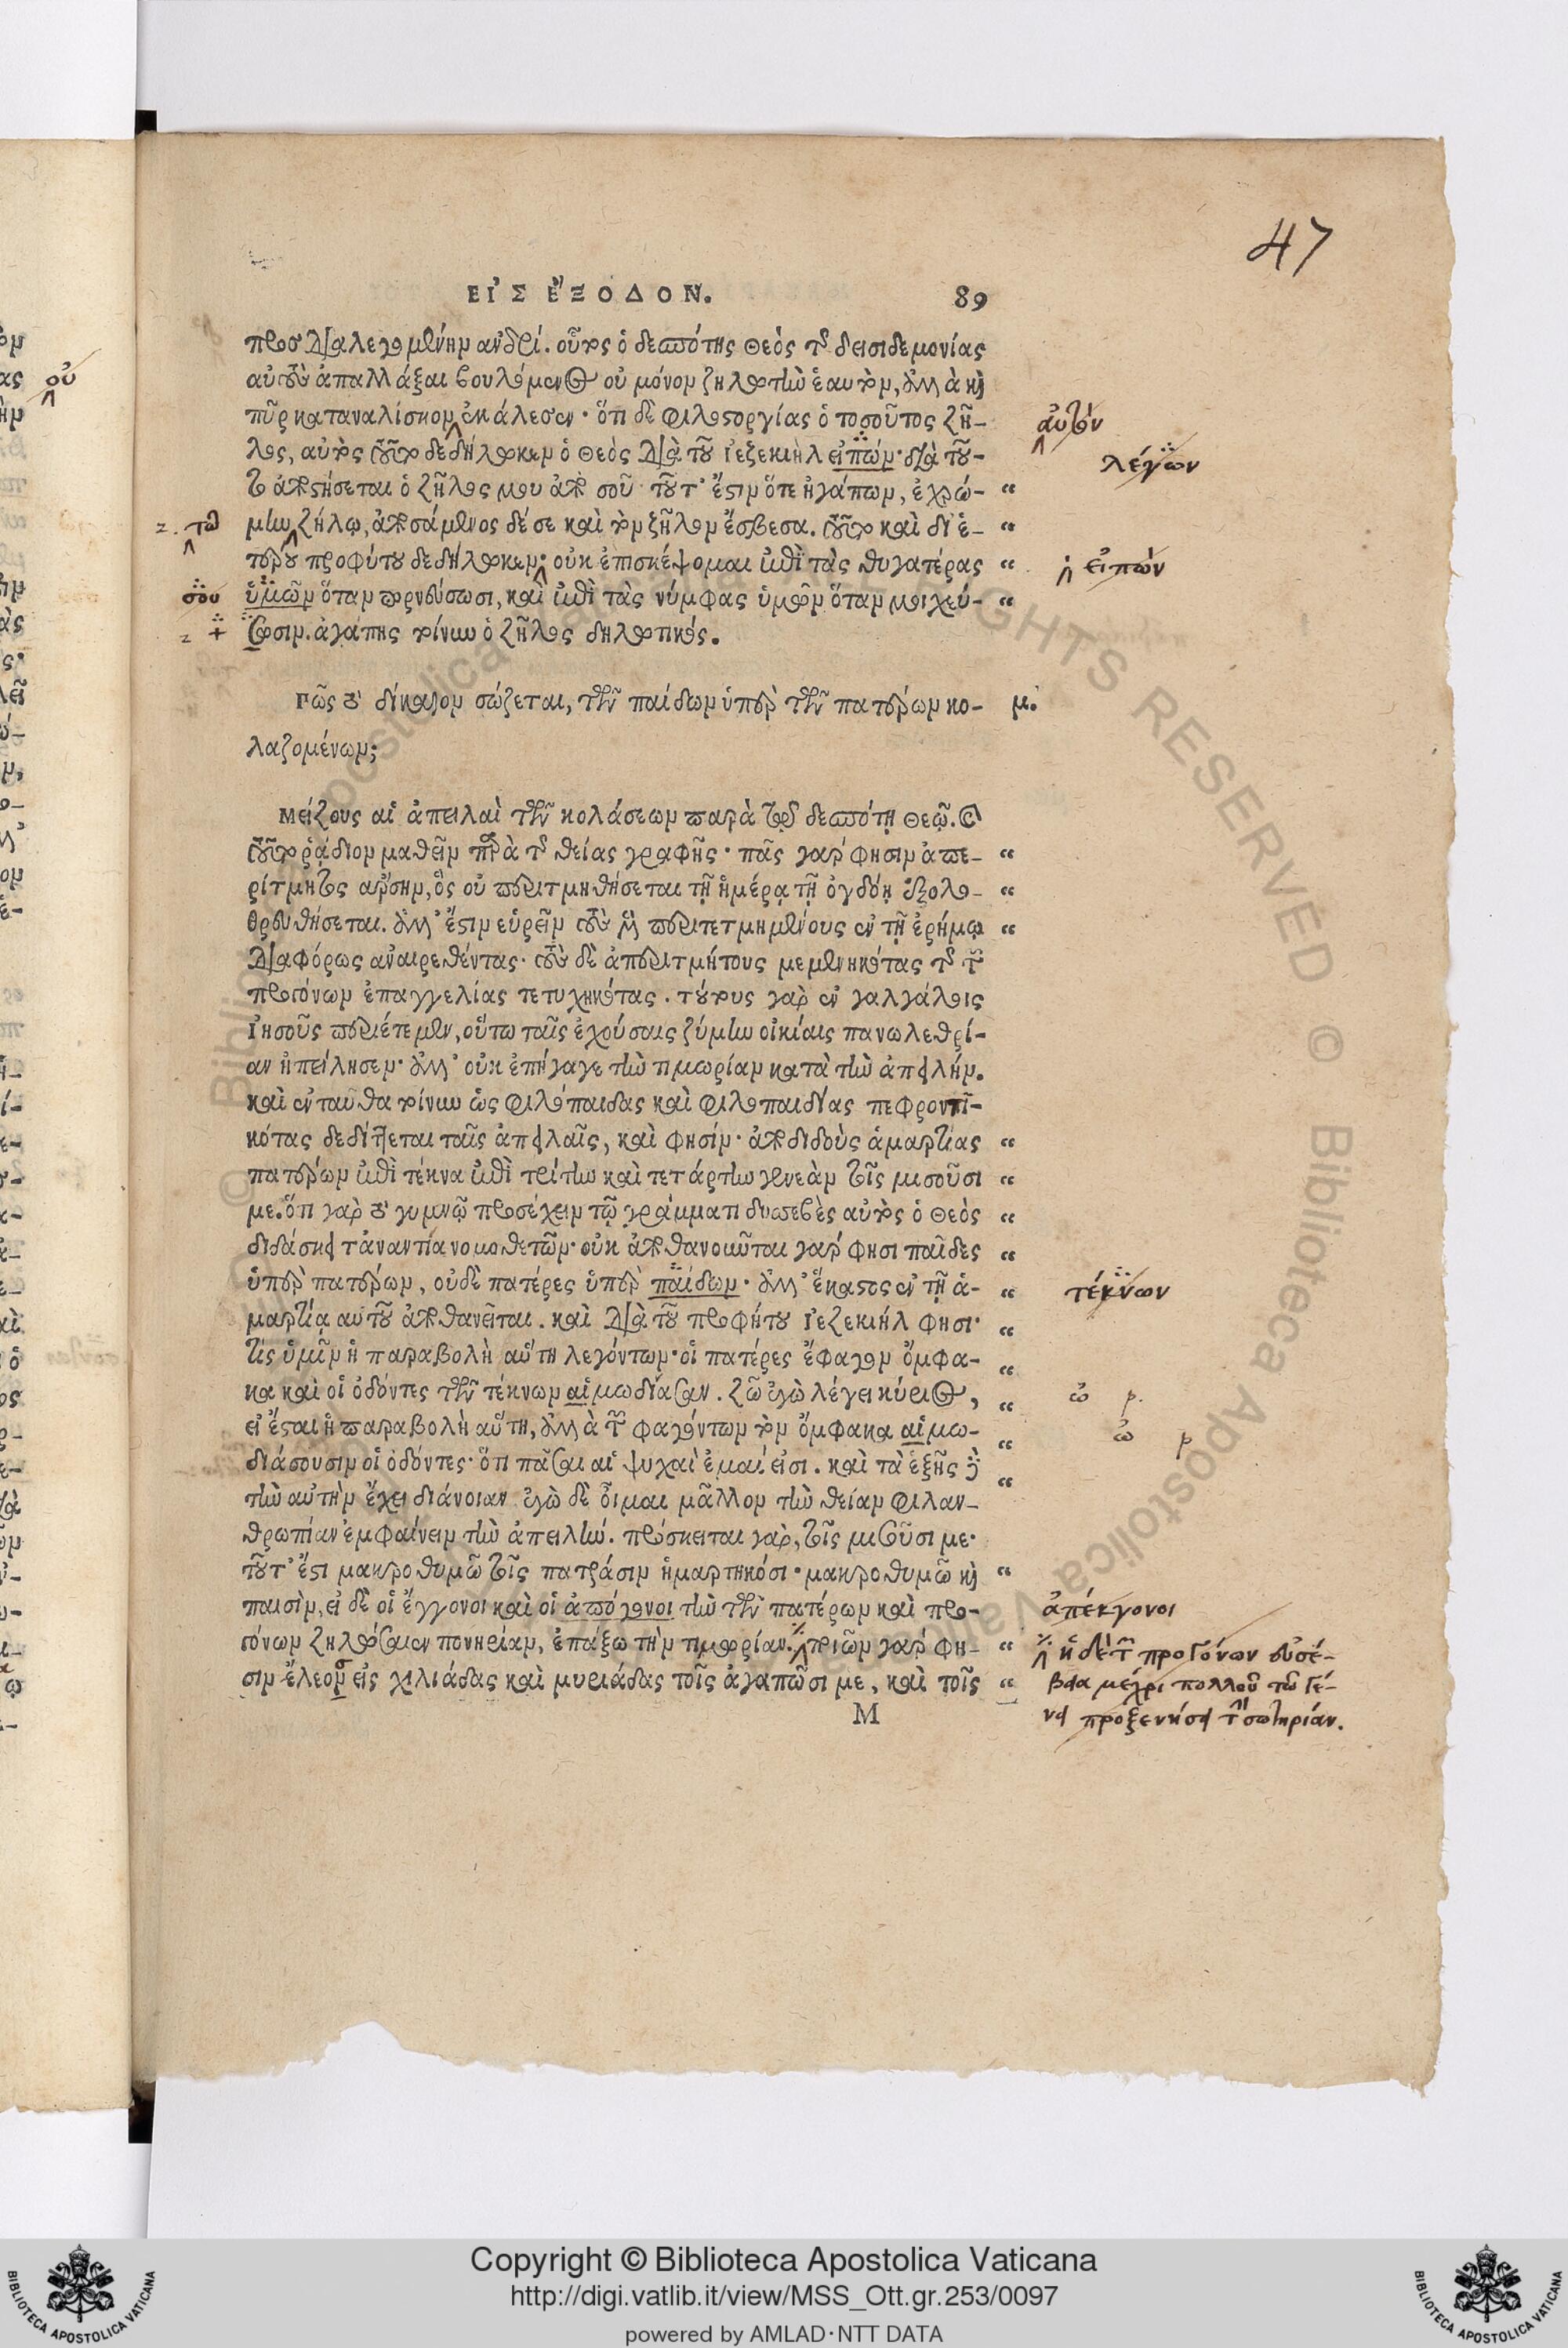 47
ΕἸΣ ἜΞΟΔΟΝ. 89
προσδιαλεγομένην ἀνδρί. οὕτως ὁ δεσπότης Θεὸς τῆς δεισιδεμονίας
αὐτοὺς ἀπαλλάξαι βουλόμενος οὐ μόνον ζηλωτὴν ἑαυτὸν, ἀλλὰ καὶ
πῦρ καταναλίσκον ἐκάλεσεν· ὅτι δὲ φιλοστοργίας ὁ τοσοῦτος ζῆ-
αὐτὸν
λος, αὐτὸς τοῦτο δεδήλωκεν ὁ Θεὸς διὰ τοῦ Ἰεζεκιὴλ εἰπών· διὰ τοῦ-
λέγων
το ἀποστήσεται ὁ ζῆλος μου ἀπὸ σοῦ· τοῦτ' ἔστιν ὅτε ἠγάπων, ἐχρώ- “
τῶ
μην ζήλῳ, ἀπωσάμενος δέ σε καὶ τὸν ζῆλον ἔσβεσα. τοῦτο καὶ δι' ἑ- “
τέρου προφύτου δεδήλωκεν· οὐκ ἐπισκέψομαι ἐπὶ τὰς θυγατέρας “
εἰπὼν
σου
ὑμῶν ὅταν πορνεύσωσι, καὶ ἐπὶ τὰς νύμφας ὑμῶν ὅταν μοιχεύ- “
+
σωσιν. ἀγάπης τοίνυν ὁ ζῆλος δηλωτικός.
Πῶς τὸ δίκαιον σώζεται, τῶν παίδων ὑπὲρ τῶν πατέρων κο- μ.
λαζομένων;
Μείζους αἱ ἀπειλαὶ τῶν κολάσεων παρὰ τῷ δεσπότῃ Θεῷ. καὶ
τοῦτο ῥᾴδιον μαθεῖν παρὰ τῆς θείας γραφῆς· πᾶς γάρ φησιν ἀπε- “
ρίτμητος ἄρσην, ὃς οὐ περιτμηθήσεται τῇ ἡμέρᾳ τῇ ὀγδόῃ ἐξολο- “
θρευθήσεται. ἀλλ' ἔστιν εὑρεῖν τοὺς μὲν περιτετμημένους ἐν τῇ ἐρήμῳ “
διαφόρως ἀναιρεθέντας· τοὺς δὲ ἀπεριτμήτους μεμενηκότας τῆς τῶν
προγόνων ἐπαγγελίας τετυχηκότας. τούτους γὰρ ἐν γαλγάλοις
Ἰησοῦς περιέτεμεν, οὕτω ταῖς ἐχούσαις ζύμην οἰκίαις πανωλεθρί-
αν ἠπείλησεν· ἀλλ' οὐκ ἐπήγαγε τὴν τιμωρίαν κατὰ τὴν ἀπειλήν.
καὶ ἐνταῦθα τοίνυν ὡς φιλόπαιδας καὶ φιλοπαιδίας πεφροντι-
κότας δεδίττεται ταῖς ἀπειλαῖς, καὶ φησίν· ἀποδιδοὺς ἁμαρτίας “
πατέρων ἐπὶ τέκνα ἐπὶ τρίτην καὶ τετάρτην γενεὰν τοῖς μισοῦσι “
με. ὅτι γὰρ οὐ γυμνῷ προσέχειν τῷ γράμματι δυσσεβὲς αὐτὸς ὁ Θεὸς “
διδάσκει τἀναντία νομοθετῶν· οὐκ ἀποθανοῦνται γάρ φησι παῖδες “
ὑπὲρ πατέρων, οὐδὲ πατέρες ὑπὲρ παίδων· ἀλλ' ἕκαστος ἐν τῇ ἁ- “
τέκνων
μαρτίᾳ αὐτοῦ ἀποθανεῖται. καὶ διὰ τοῦ προφήτου Ἰεζεκιήλ φησι· “
τίς ὑμῖν ἡ παραβολὴ αὕτη λεγόντων· οἱ πατέρες ἔφαγον ὄμφα- “
κα καὶ οἱ ὀδόντες τῶν τέκνων αἱμωδίασαν. ζῶ ἐγὼ λέγει κύριος, “
εἰ ἔσται ἡ παραβολὴ αὕτη, ἀλλὰ τῶν φαγόντων τὸν ὄμφακα αἱμω- “
διάσουσιν οἱ ὀδόντες· ὅτι πᾶσαι αἱ ψυχαὶ ἐμαί εἰσι. καὶ τὰ ἑξῆς δὲ “
τὴν αὐτὴν ἔχει διάνοιαν. ἐγὼ δὲ οἶμαι μᾶλλον τὴν θείαν φιλαν-
θρωπίαν ἐμφαίνειν τὴν ἀπειλήν. πρόσκειται γὰρ, τοῖς μισοῦσι με·
τοῦτ' ἔστι μακροθυμῶ τοῖς πατράσιν ἡμαρτηκόσι· μακροθυμῶ καὶ “
παισὶν, εἰ δὲ οἱ ἔγγονοι καὶ οἱ ἀπόγονοι τὴν τῶν πατέρων καὶ προ-
ἀπέκγονοι
γόνων ζηλώσαιεν πονηρίαν, ἐπάξω τὴν τιμωρίαν. ποιῶν γάρ φη- “
ἡ δὲ τῶν προγόνων εὐσέ-
σιν ἔλεον εἰς χιλιάδας καὶ μυριάδας τοῖς ἀγαπῶσι με, καὶ τοῖς “
βεια μέχρι πολλοῦ τῶ γέ-
νει προξενήσει τὴν σωτηρίαν.
M
© Biblioteca Apostolica Vaticana ALL RIGHTS RESERVED © Biblioteca Apostolica Vaticana
Copyright © Biblioteca Apostolica Vaticana
http://digi.vatlib.it/view/MSS_Ott.gr.253/0097
powered by AMLAD·NTT DATA
BIBLIOTECA APOSTOLICA VATICANA
BIBLIOTECA APOSTOLICA VATICANA